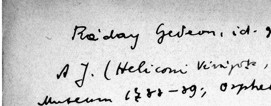 Ráday Gedeon, id. g
A J. (Heliconi Virágok,
Museum 1788-89; Orpheus